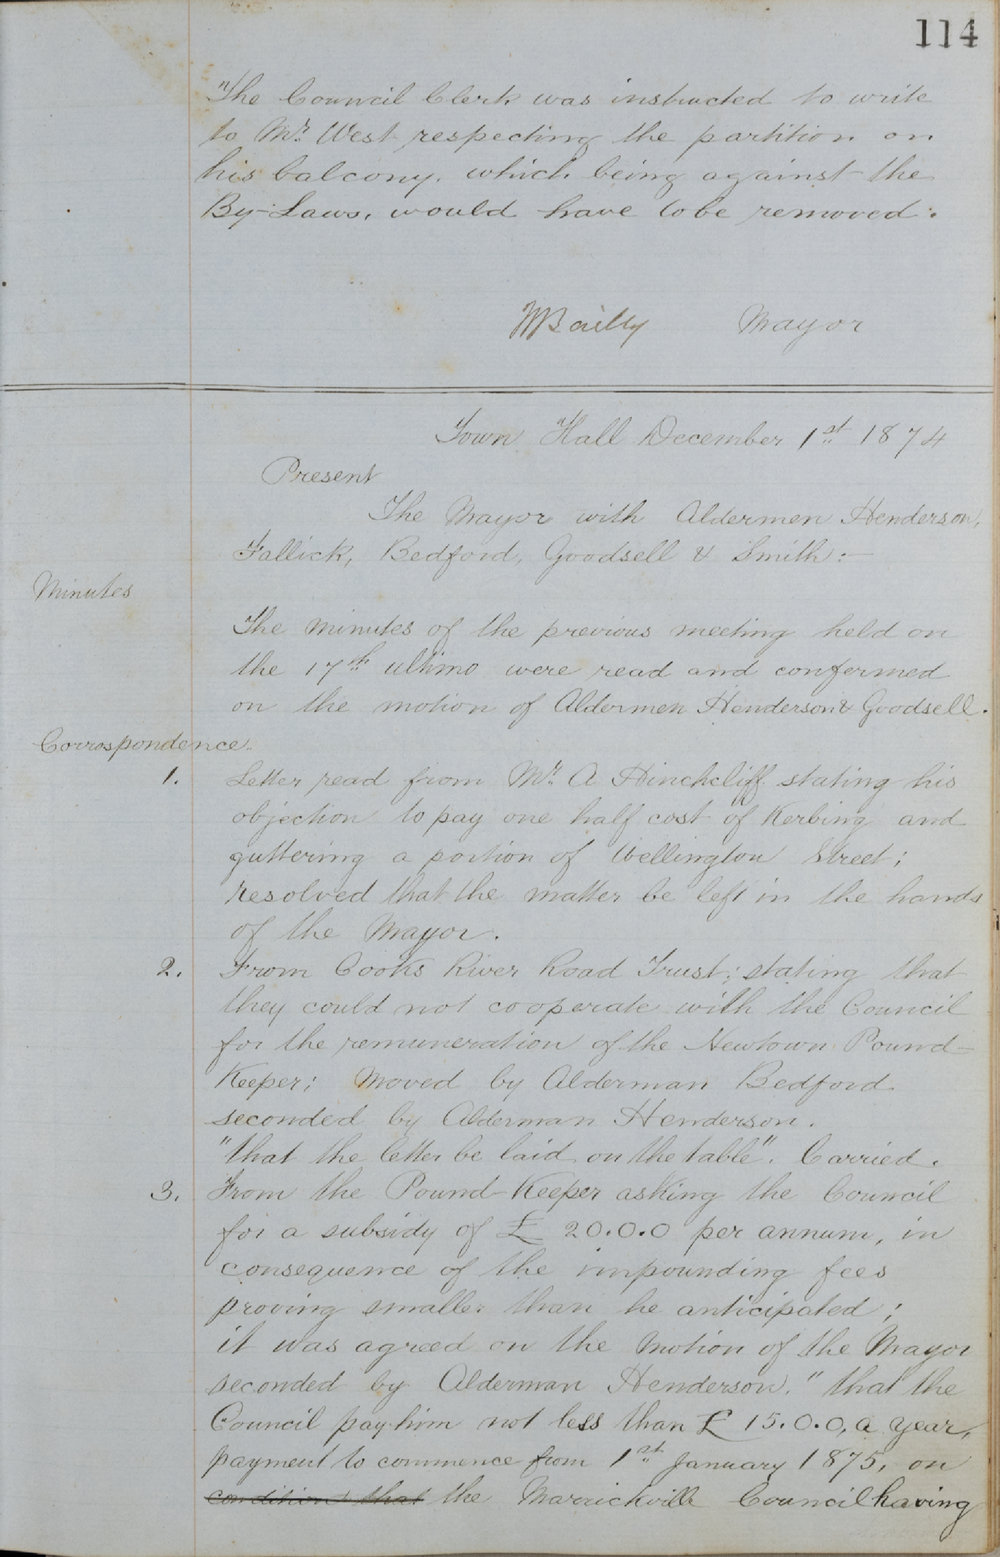 114
"The Council Clerk was instructed to write
to Mr. West respecting the partition on
his balcony, which being against the
By-Laws, would have to be removed.
WBailly Mayor
Town Hall December 1st 1874
Present
The Mayor with Aldermen Henderson,
Fallick, Bedford, Goodsell & Smith:—
Minutes
The Minutes of the previous meeting held on
the 17th ultimo were read and confermed
on the motion of Aldermen Henderson & Goodsell.
Corrospondence.
1. Letter read from Mr. A Hinchcliff stating his
objection to pay one half cost of Kerbing and
guttering a portion of Wellington Street;
resolved that the matter be left in the hands
of the Mayor.
2. From Cooks River Road Trust; stating that
they could not cooperate with the Council
for the remuneration of the Newtown Pound-
Keeper; Moved by Alderman Bedford
seconded by Alderman Henderson.
"that the letter be laid on the table". Carried.
3. From the Pound-Keeper asking the Council
for a subsidy of £ 20.0.0 per annum, in
consequence of the impounding fees
proving smaller than he anticipated;
it was agreed on the Motion of the Mayor
seconded by Alderman Henderson, "that the
Council pay him not less than £ 15.0.0, a year,
payment to commence from 1st January 1875, on
condition that the Marrickville Council having